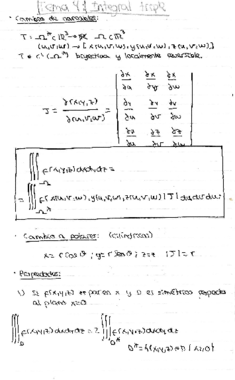 Tema 4: Integral triple
• Cambio de variables:
T: Ω* ⊂ ℝ³ → Ω ⊂ ℝ³
(u,v,w) → [x(u,v,w), y(u,v,w), z(u,v,w)]
T ∈ C¹(Ω*) biyectiva y localmente reversible.
J = ∂(x,y,z) / ∂(u,v,w) =
∂x/∂u ∂x/∂v ∂x/∂w
∂y/∂u ∂y/∂v ∂y/∂w
∂z/∂u ∂z/∂v ∂z/∂w
∭_Ω f(x,y,z) dx dy dz =
= ∭_Ω* f(x(u,v,w), y(u,v,w), z(u,v,w)) |J| du dv dw
• Cambio a polares: (cilíndricas)
x = r cos θ ; y = r sen θ ; z = z |J| = r
• Propiedades:
1) Si f(x,y,z) es par en x y D es simétrico respecto
al plano x=0
∭_D f(x,y,z) dx dy dz = 2 ∭_D* f(x,y,z) dx dy dz
D* = {(x,y,z) ∈ D / x≥0}